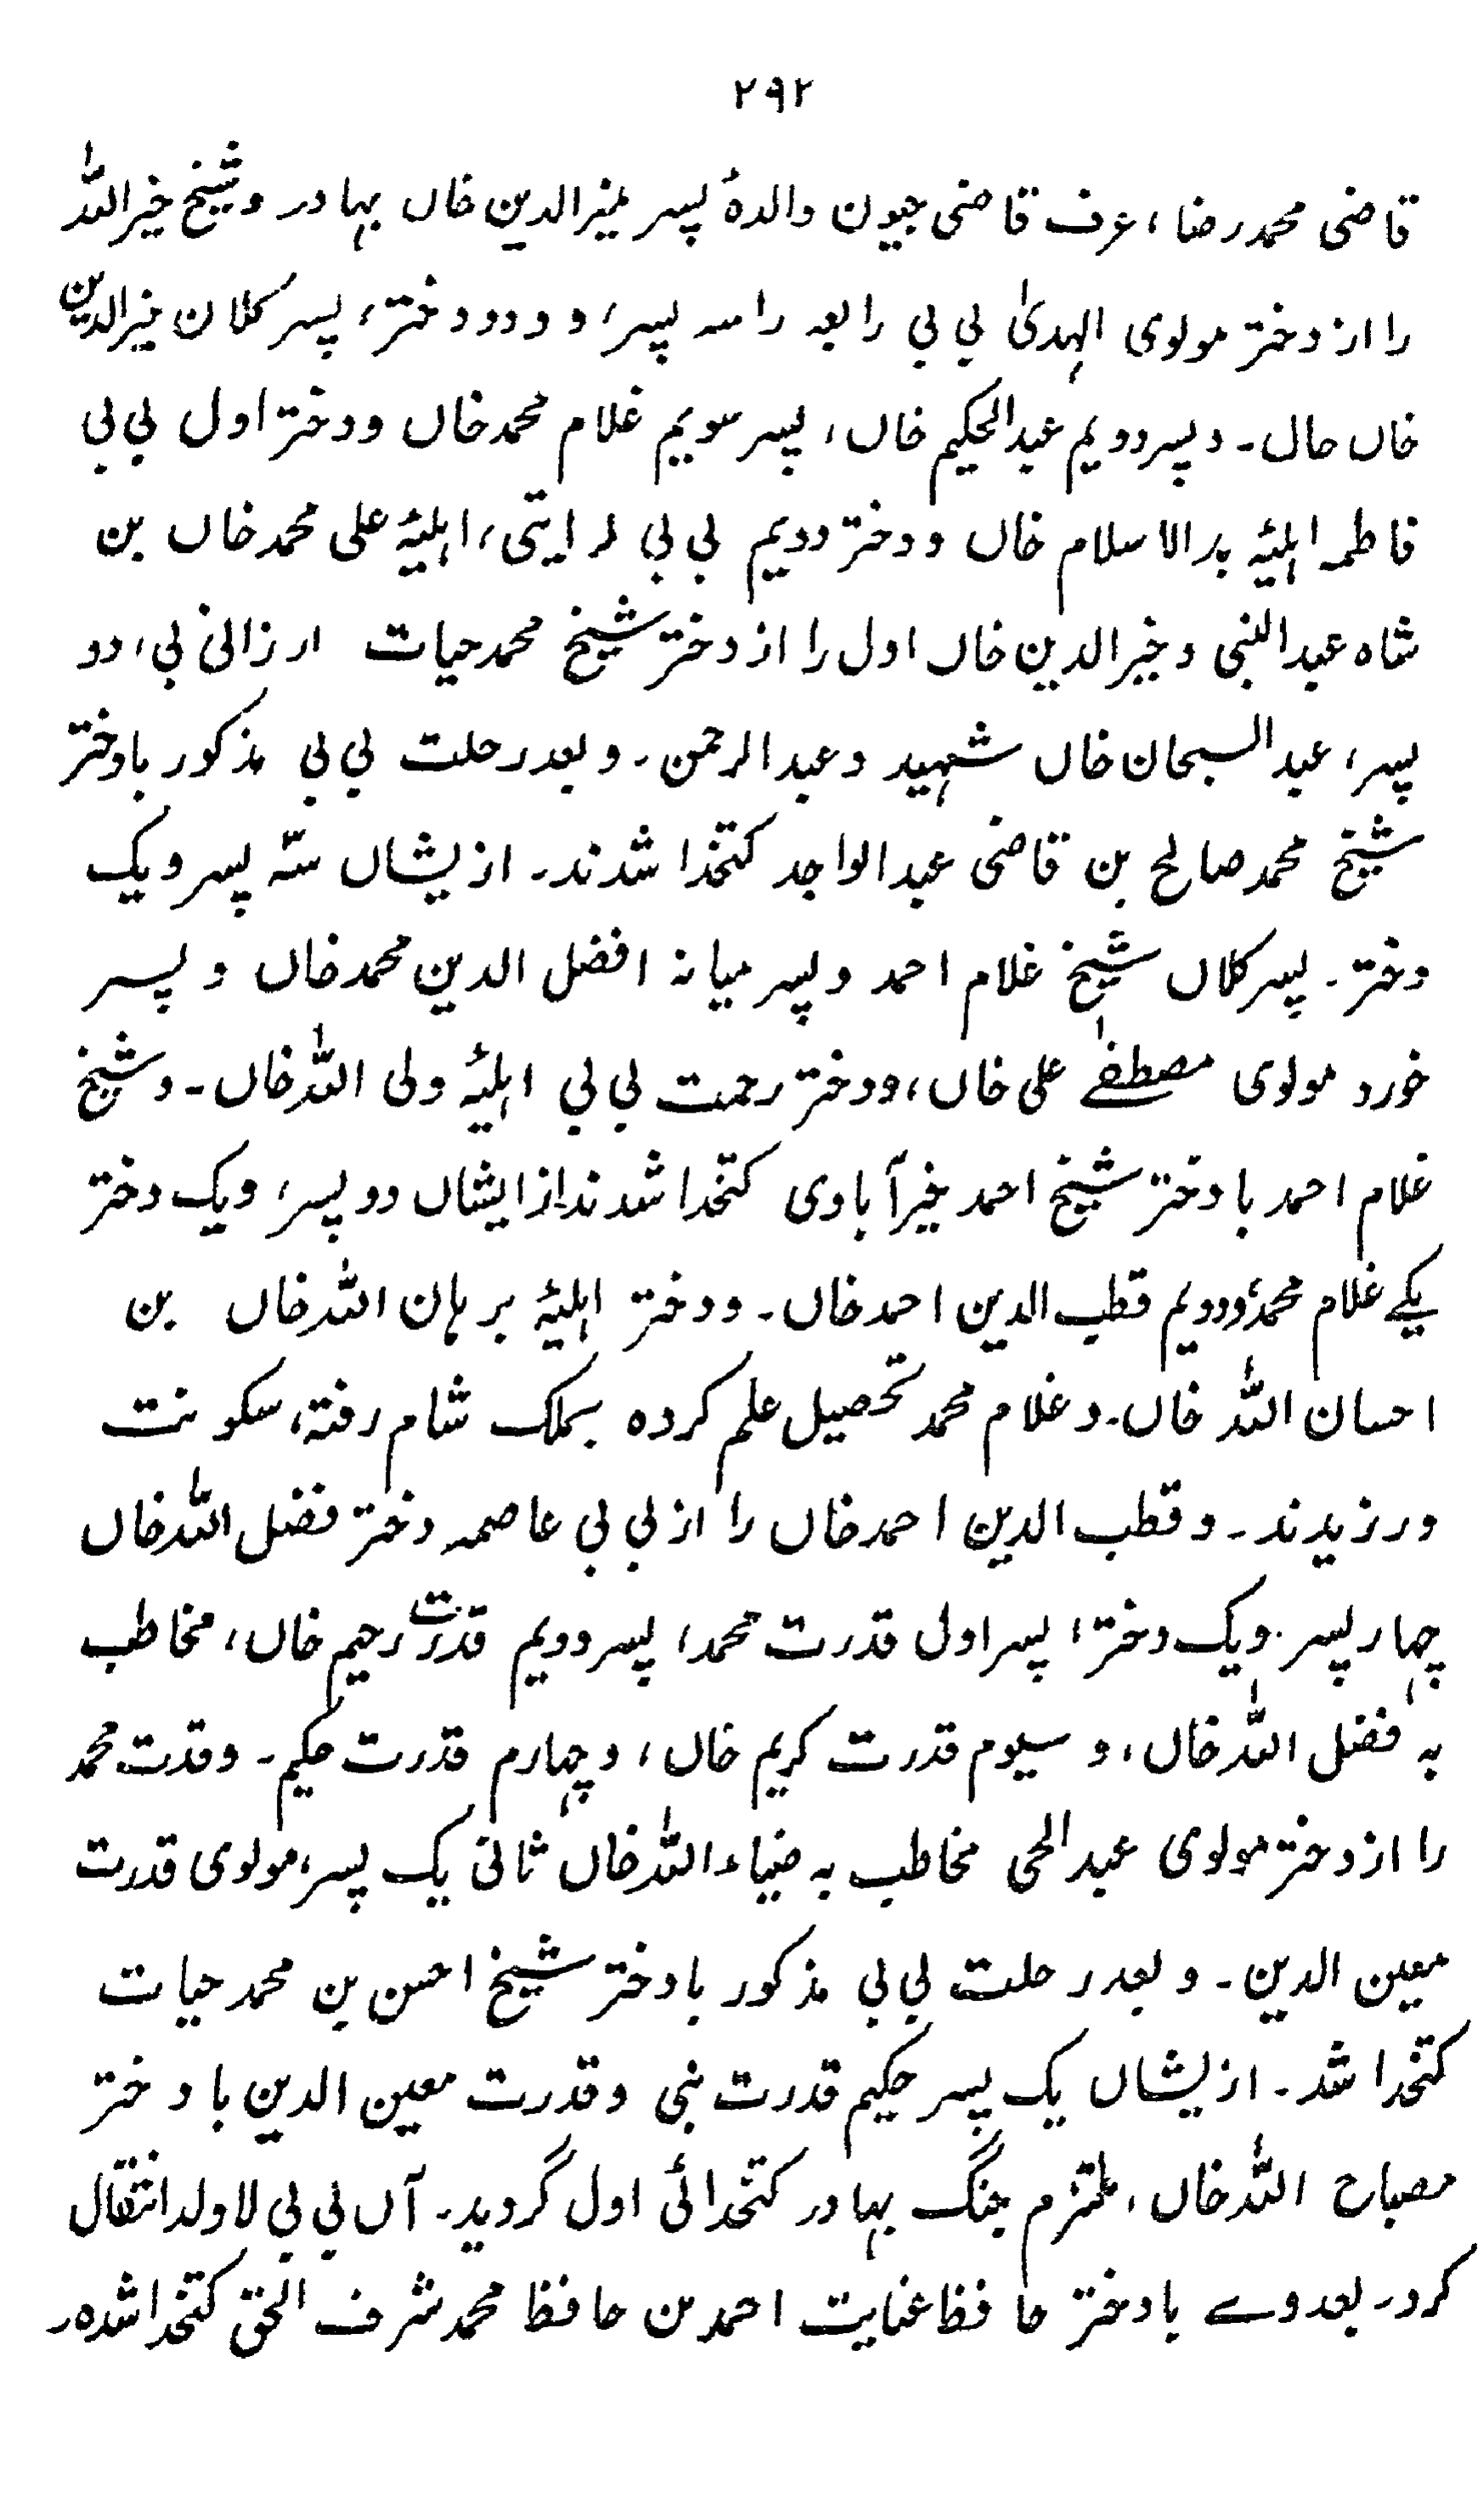 ۲۹۲
قاضی محمد رضا، عرف قاضی جیون والدهٔ پسر منیرالدین خاں بہادر و شیخ خیراللہ
را از دختر مولوی الہدیٰ بی بی رابعہ را سہ پسر، و دو دختر، پسر کلان خیرالدین
خاں حال۔ و پسر دویم عبدالحکیم خاں، پسر سویم غلام محمد خاں و دختر اول بی بی
فاطمہ اہلیۂ بدرالاسلام خاں و دختر دویم بی بی اہلیۂ علی محمد خاں بن
شاہ عبدالنبی و خیرالدین خاں اول را از دختر شیخ محمد حیات ارزانی بی، دو
پسر، عبدالسبحان خاں شہید و عبدالرحمن۔ و بعد رحلت بی بی مذکور با دختر
شیخ محمد صالح بن قاضی عبدالواجد کتخدا شدند۔ ازیشاں سہ پسر و یک
دختر۔ پسر کلاں شیخ غلام احمد و پسر میانہ افضل الدین محمد خاں و پسر
خورد مولوی مصطفےٰ علی خاں، و دختر رحمت بی بی اہلیۂ ولی اللہ خاں۔ و شیخ
غلام احمد با دختر شیخ احمد خیرآبادی کتخدا شدند از ایشاں دو پسر، و یک دختر
یکے غلام محمد، و دویم قطب الدین احمد خاں۔ و دختر اہلیۂ برہان اللہ خاں بن
احسان اللہ خاں۔ و غلام محمد تحصیل علم کردہ بملک شام رفتہ، سکونت
ورزیدند۔ و قطب الدین احمد خاں را از بی بی عاصمہ دختر فضل اللہ خاں
چہار پسر۔ و یک دختر، پسر اول قدرت محمد، پسر دویم قدرت رحیم خاں، مخاطب
بہ فضل اللہ خاں، و سیوم قدرت کریم خاں، و چہارم قدرت حکیم۔ و قدرت محمد
را از دختر مولوی عبدالحی مخاطب بہ ضیاء اللہ خاں ثانی یک پسر، مولوی قدرت
معین الدین۔ و بعد رحلت بی بی مذکور با دختر شیخ احسن بن محمد حیات
کتخدا شد۔ ازیشاں یک پسر حکیم قدرت نبی و قدرت معین الدین با دختر
مصباح اللہ خاں، ملتزم جنگ بہادر کتخدائی اول گردید۔ آں بی بی لا ولد انتقال
کرد۔ بعد وے با دختر حافظ عنایت احمد بن حافظ محمد شرف الحق کتخدا شدہ۔